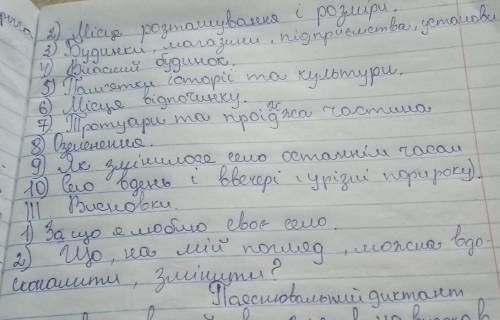 2) Місце розташування і розміри.
3) Будинки, магазини, підприємства, установи
4) Власний будинок.
5) Пам'ятки історії та культури.
6) Місце відпочинку.
7) Тротуари та проїжджа частина
8) Озеленення.
9) Як змінилося село останнім часом
10) Село вдень і ввечері (у різні пори року).
III Висновки.
1) За що я люблю своє село.
2) Що, на мій погляд, можна вдо-
сконалити, змінити?
Пояснювальний диктант